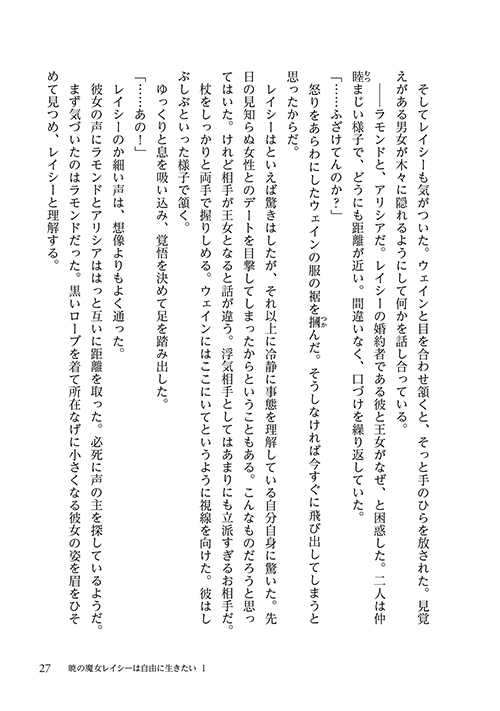 そしてレイシーも気がついた。ウェインと目を合わせ頷くと、そっと手のひらを放された。見覚
えがある男女が木々に隠れるようにして何かを話し合っている。
――ラモンドと、アリシアだ。レイシーの婚約者である彼と王女がなぜ、と困惑した。二人は仲
睦まじい様子で、どうにも距離が近い。間違いなく、口づけを繰り返していた。
「……ふざけてんのか？」
怒りをあらわにしたウェインの服の裾を摑んだ。そうしなければ今すぐに飛び出してしまうと
思ったからだ。
レイシーはといえば驚きはしたが、それ以上に冷静に事態を理解している自分自身に驚いた。先
日の見知らぬ女性とのデートを目撃してしまったからということもある。こんなものだろうと思っ
てはいた。けれど相手が王女となると話が違う。浮気相手としてはあまりにも立派すぎるお相手だ。
杖をしっかりと両手で握りしめる。ウェインにはここにいてというように視線を向けた。彼はし
ぶしぶといった様子で頷く。
ゆっくりと息を吸い込み、覚悟を決めて足を踏み出した。
「……あの！」
レイシーのか細い声は、想像よりもよく通った。
彼女の声にラモンドとアリシアははっと互いに距離を取った。必死に声の主を探しているようだ。
まず気づいたのはラモンドだった。黒いローブを着て所在なげに小さくなる彼女の姿を眉をひそ
めて見つめ、レイシーと理解する。
27 暁の魔女レイシーは自由に生きたい 1